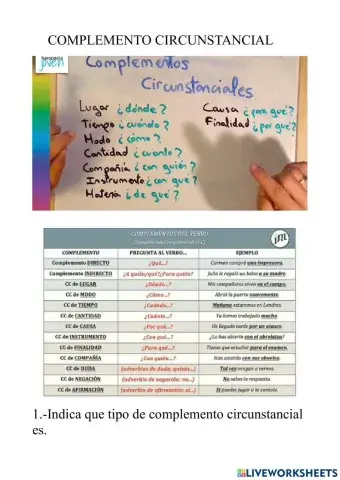 COMPLEMENTO CIRCUNSTANCIAL
Complementos
Circunstanciales
Lugar ¿dónde?
Causa ¿para qué?
Tiempo ¿cuándo?
Finalidad ¿por qué?
Modo ¿cómo?
Cantidad ¿cuánto?
Compañía ¿con quién?
Instrumento ¿con qué?
Materia ¿de qué?
COMPLEMENTOS DEL VERBO
COMPLEMENTO PREGUNTA AL VERBO... EJEMPLO
Complemento DIRECTO ¿Qué...? Carmen compró una impresora.
Complemento INDIRECTO ¿A quién/qué?¿Para quién? Julia le regaló un bolso a su madre.
CC de LUGAR ¿Dónde...? Mis compañeros viven en el campo.
CC de MODO ¿Cómo...? Abrió la puerta suavemente.
CC de TIEMPO ¿Cuándo...? Mañana estaremos en Londres.
CC de CANTIDAD ¿Cuánto...? Ya hemos trabajado mucho.
CC de CAUSA ¿Por qué...? Ha llegado tarde por un atasco.
CC de INSTRUMENTO ¿Con qué...? ¿Lo has abierto con el abrelatas?
CC de FINALIDAD ¿Para qué...? Tienes que estudiar para el examen.
CC de COMPAÑÍA ¿Con quién...? Han comido con sus abuelos.
CC de DUDA (adverbios de duda: quizás...) Tal vez vengan a vernos.
CC de NEGACIÓN (adverbio de negación: no...) No sabes la respuesta.
CC de AFIRMACIÓN (adverbio de afirmación: sí...) Sí puedes jugar a la consola.
1.-Indica que tipo de complemento circunstancial
es.
LIVEWORKSHEETS